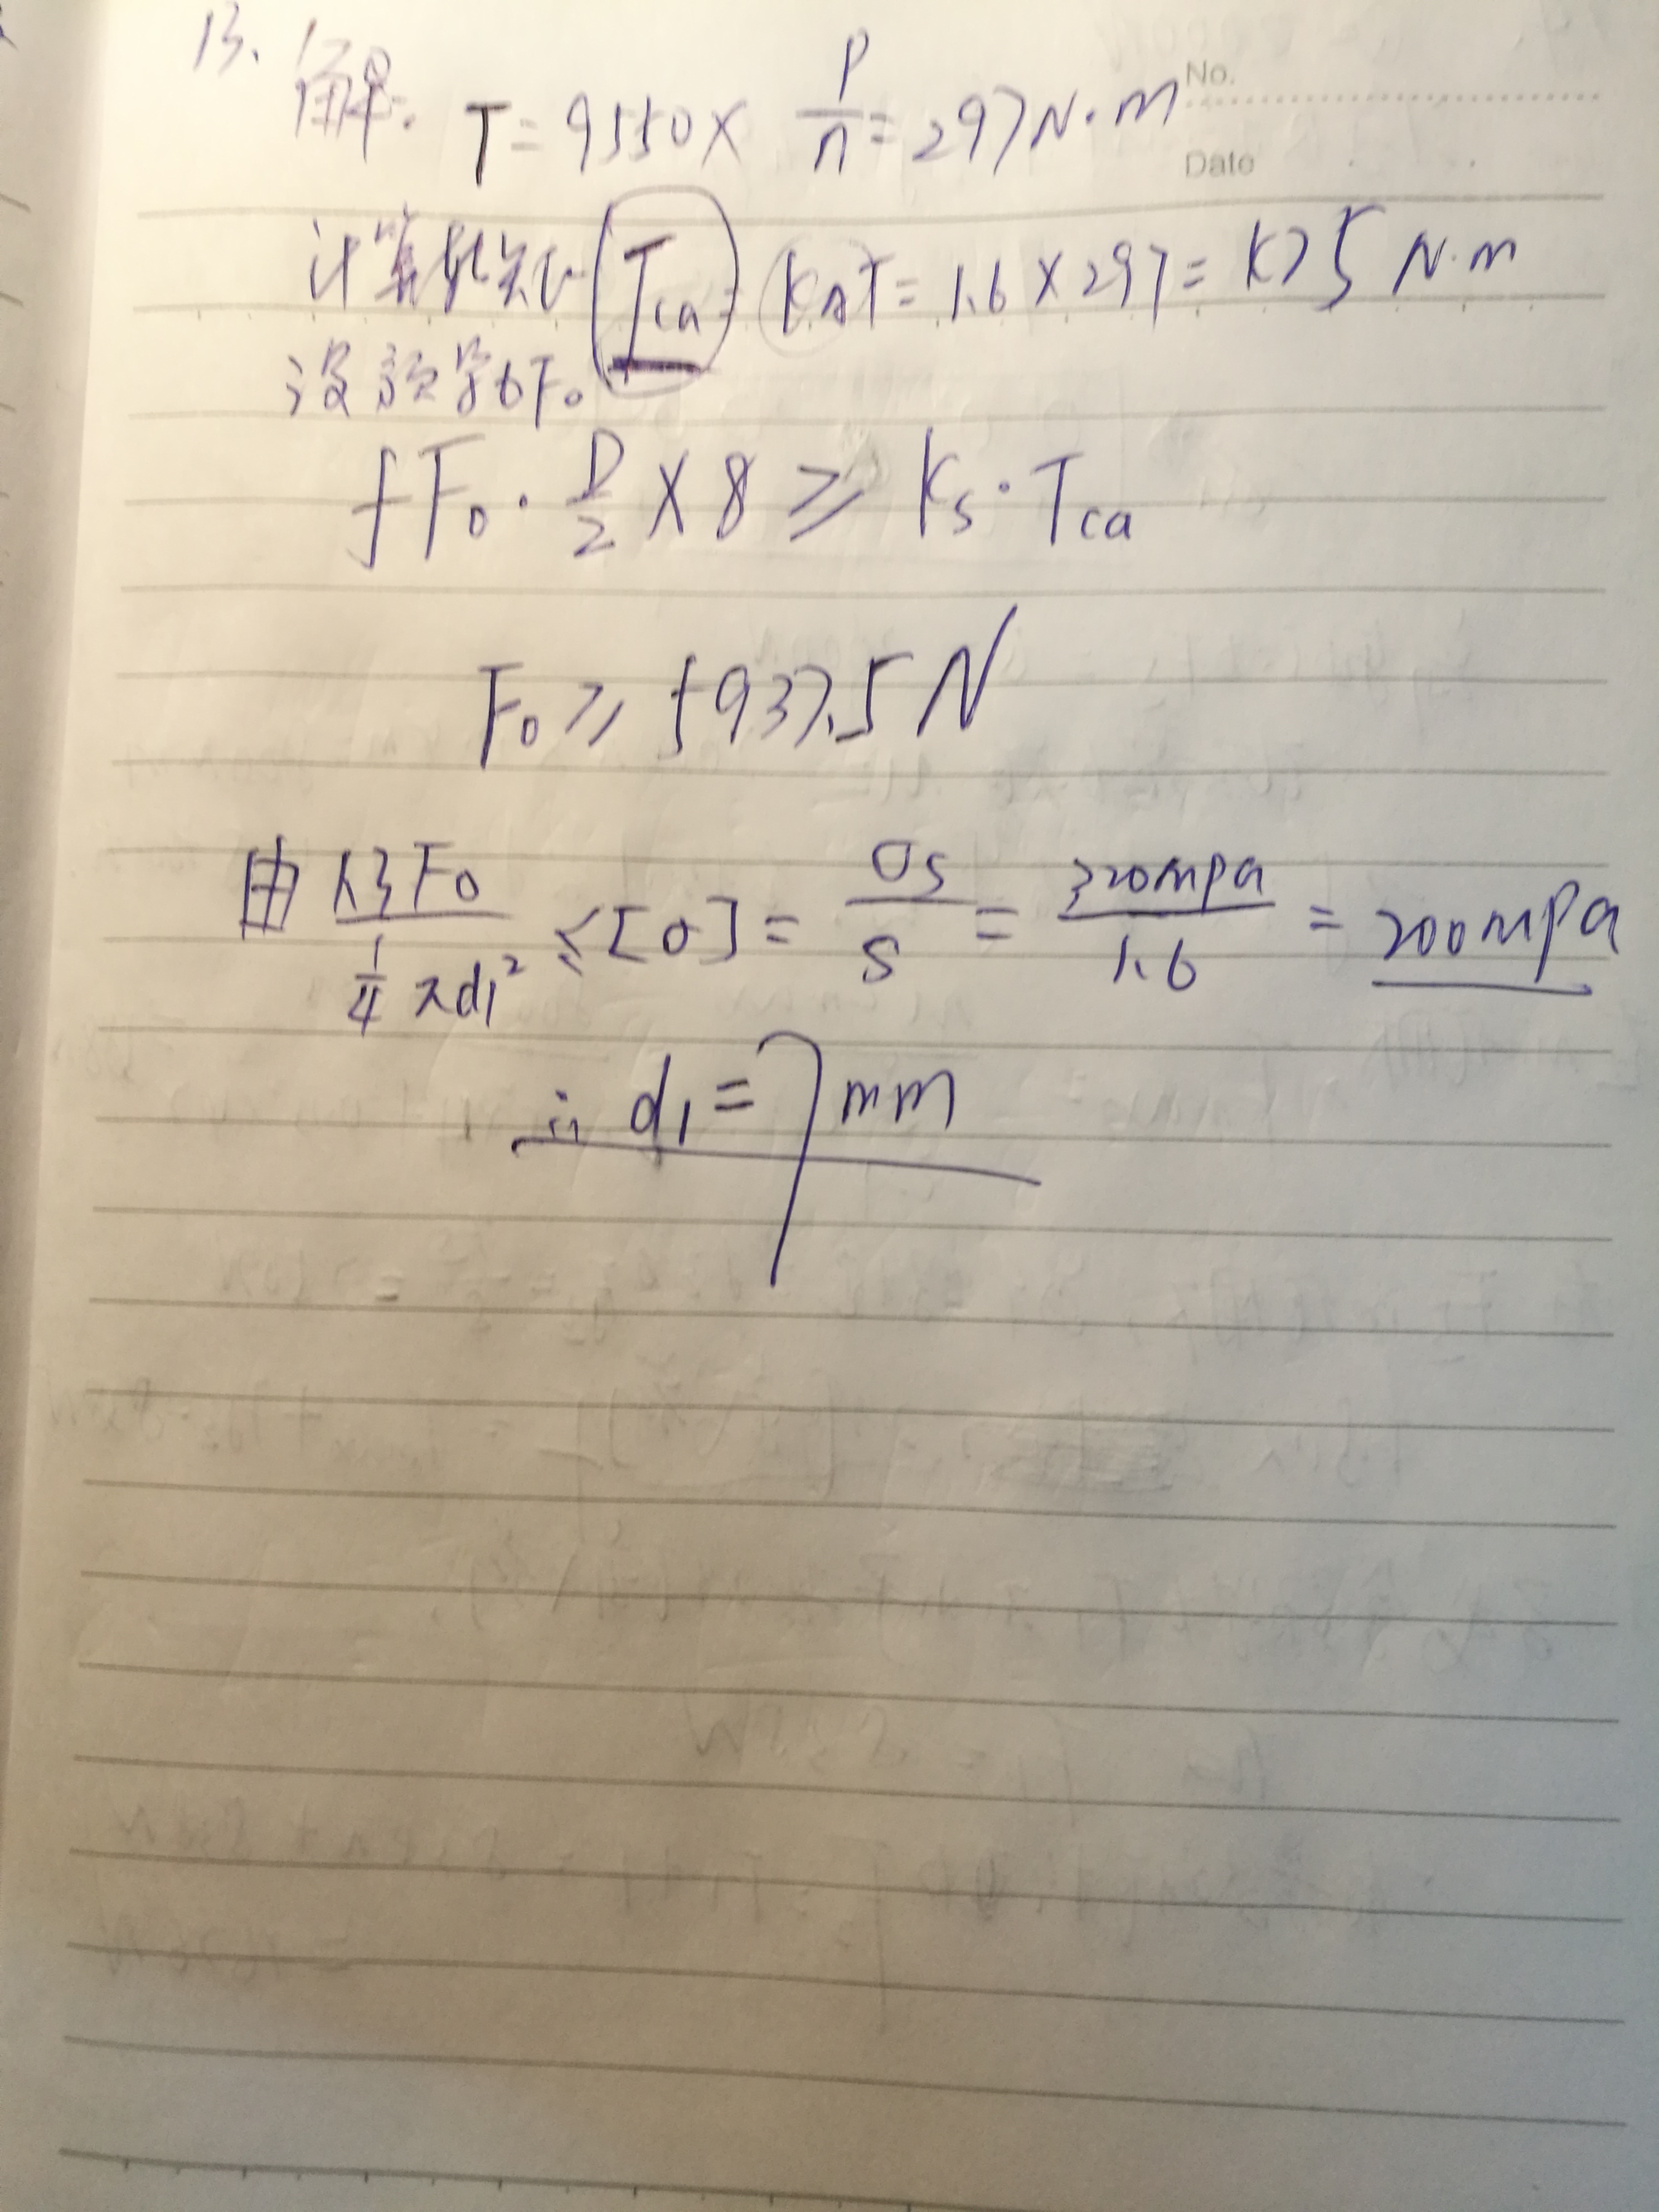 13.
No.
解: T = 9550 × P/n = 297 N·m
Date
计算 Tca = KAT = 1.6 × 297 = 475 N·m
设预紧力F0
fF0 · D/2 × 8 ≥ Ks · Tca
F0 ≥ 5937.5 N
由 1.3F0 / (1/4 πd1²) ≤ [σ] = σs/S = 320mpa/1.6 = 200mPa
∴ d1 = 7mm